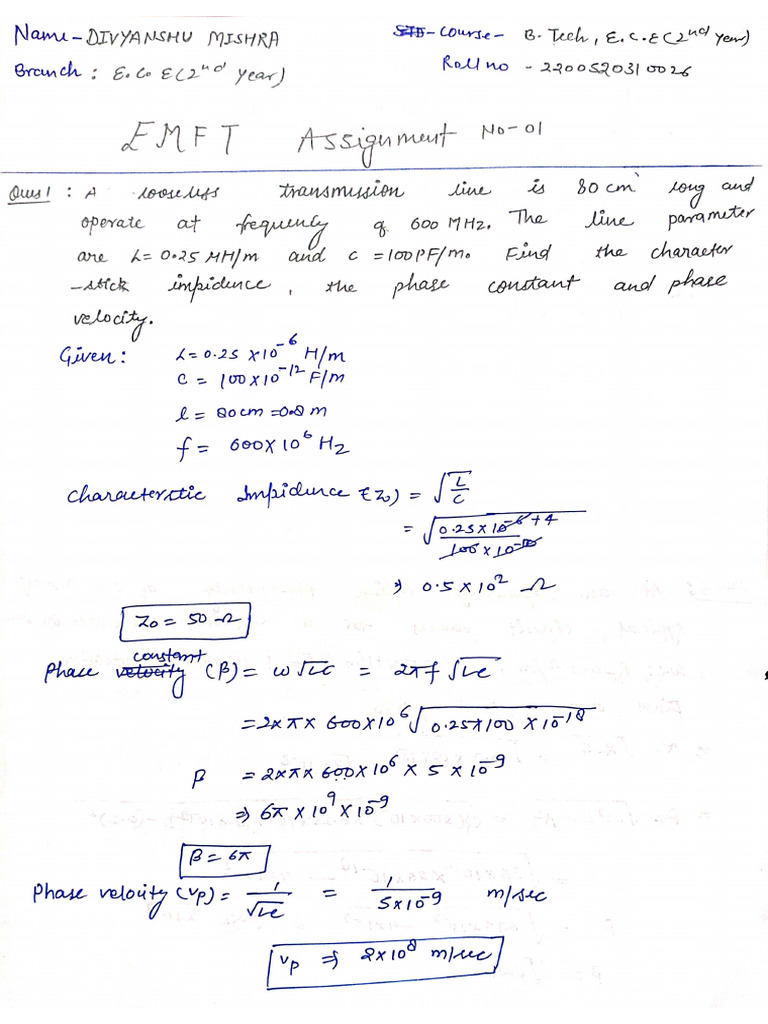 Name - DIVYANSHU MISHRA
Course - B. Tech, E.C.E(2nd year)
Branch : E.C.E(2nd year)
Roll no - 2200520310026
EMFT Assignment No-01
Ques1 : A looseless transmission line is 80 cm long and
operate at frequency of 600 MHz. The line parameter
are L= 0.25 MH/m and C =100PF/m. Find the character
-stick impidence, the phase constant and phase
velocity.
Given : L= 0.25 ×10⁻⁶ H/m
C = 100×10⁻¹² F/m
l = 80cm =0.8 m
f = 600×10⁶ Hz
Characterstic Impidence (Z₀) = √(L/C)
= √(0.25×10⁻⁶⁺⁴/100×10⁻¹⁰)
⇒ 0.5×10² Ω
Z₀ = 50 Ω
Phase velocity constant (β) = ω√LC = 2πf√LC
=2×π× 600×10⁶√0.25×100 ×10⁻¹⁸
β = 2×π× 600 × 10⁶ × 5 × 10⁻⁹
⇒ 6π × 10⁹ × 10⁻⁹
β = 6π
Phase velocity (vp) = 1/√LC = 1/5×10⁻⁹ m/sec
vp ⇒ 2×10⁸ m/sec